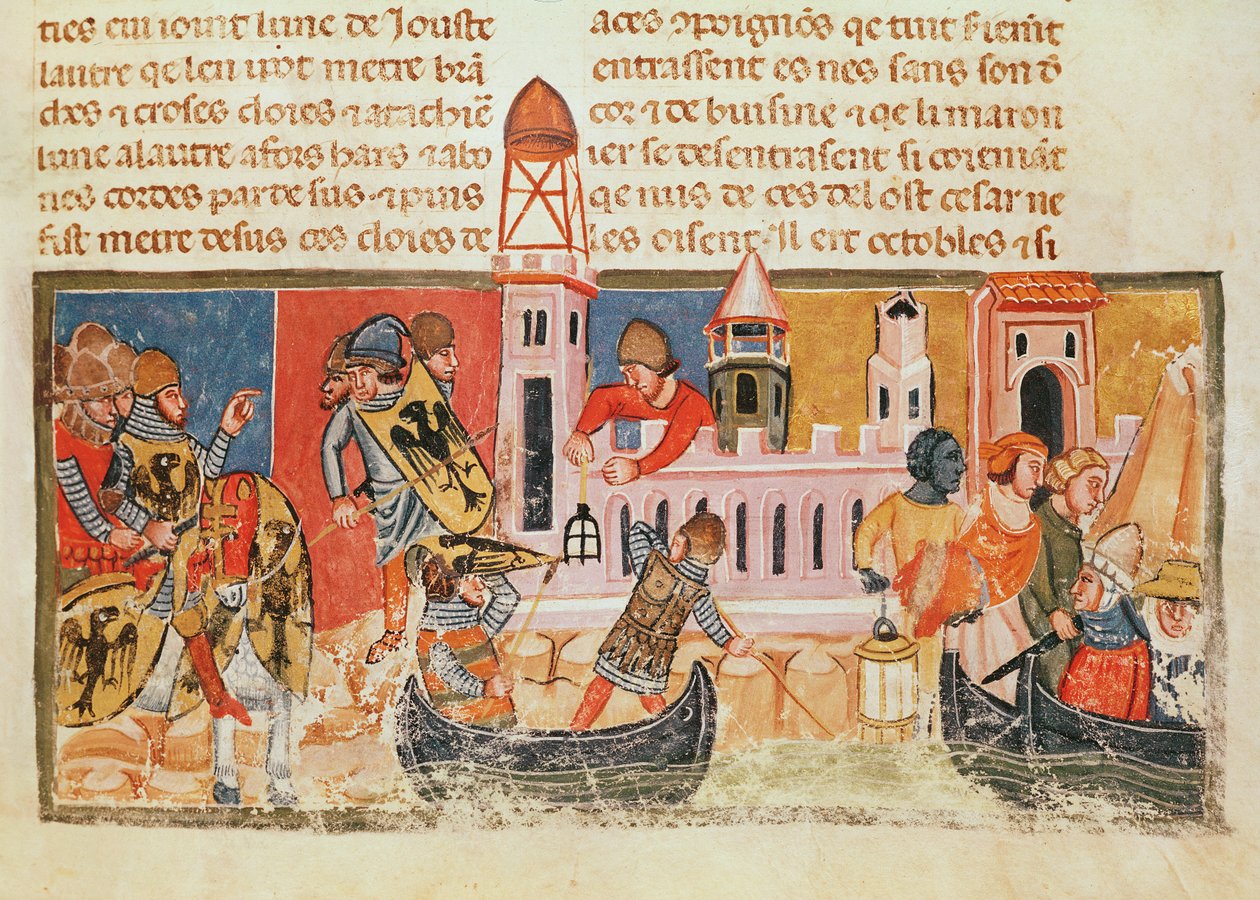 ties en iouit lune de Jouste
lautre qe len ipot metre brā
ches ⁊ croses cloies ⁊ atachiē
lune alautre afors hars ⁊ abo
nes cordes par de sus ⁊ ipuis
fist metre desus ces cloies de
aces qe tuit
entrassent es nes sans son d
cor ⁊ de buisine ⁊ qe li maron
ier se desentrasent si coiemāt
qe nus de ces del ost cesar ne
les oisent. Il ert octobles ⁊ si